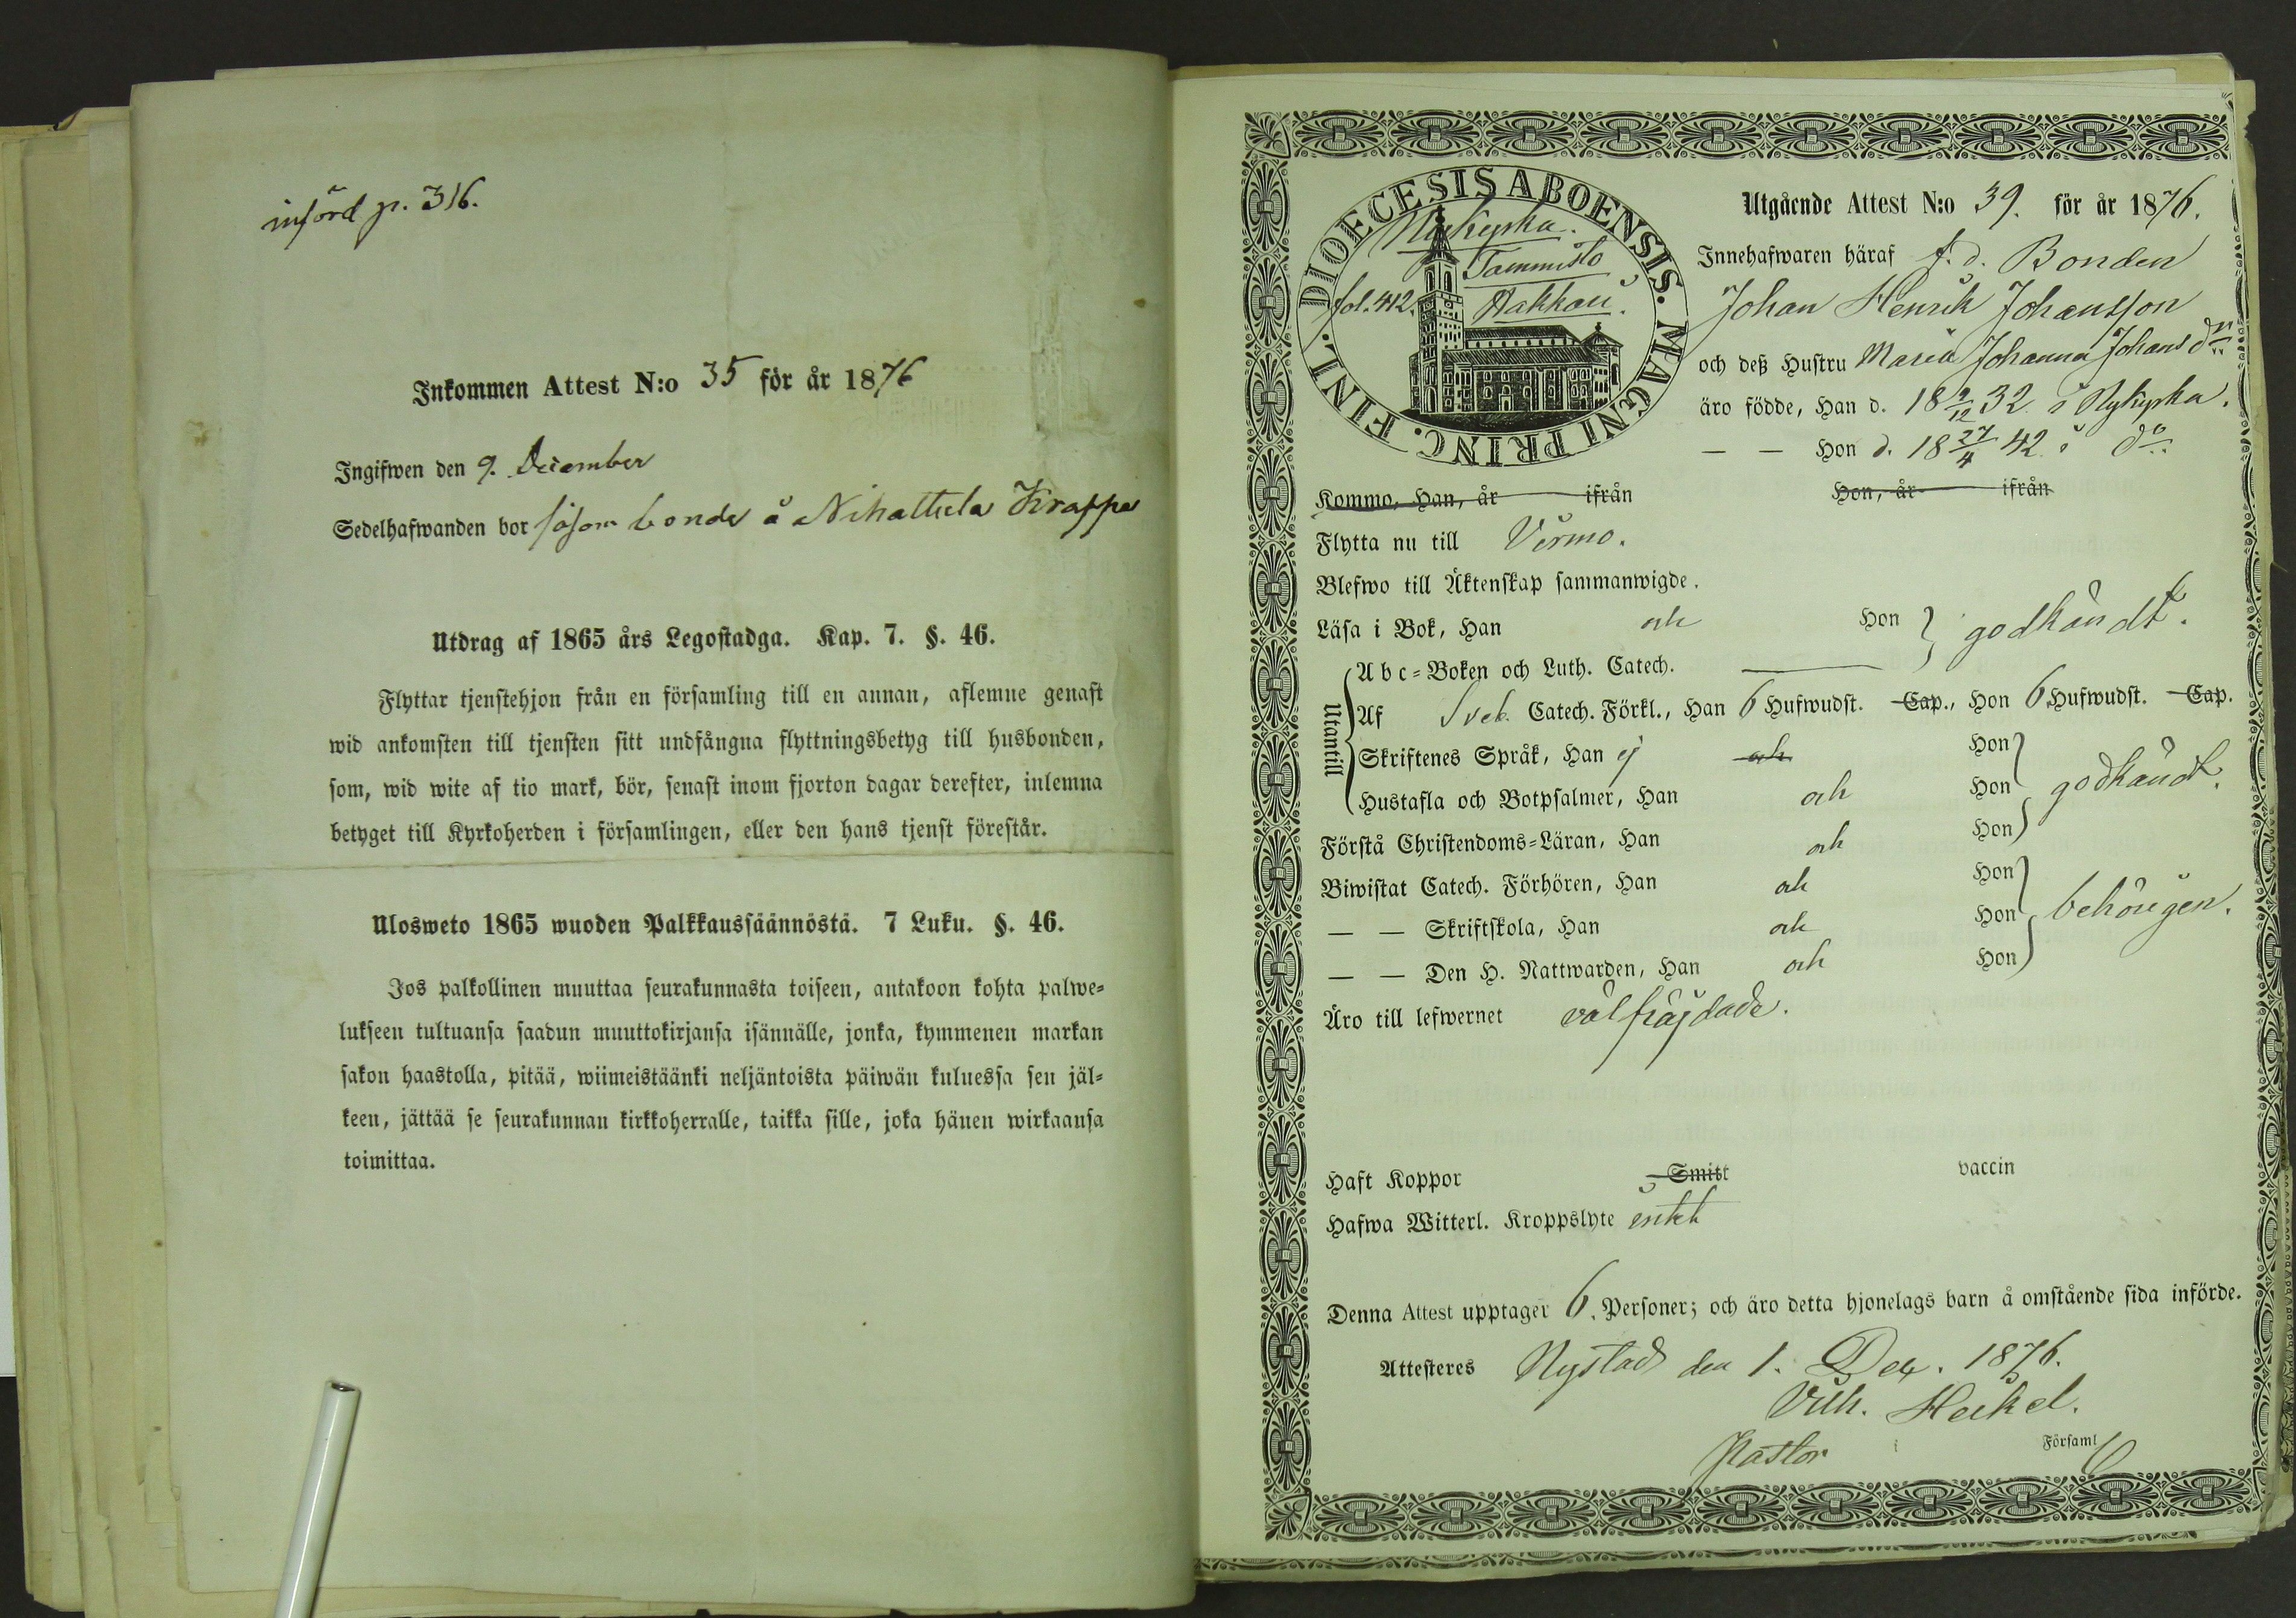 införd p. 316.
Inkommen Attest N:o 35 för år 1876
Ingifwen den 9. December
Sedelhafwanden bor såsom bonde å Nihattula Krappa
Utdrag af 1865 års Legostadga. Kap. 7. §. 46.
Flyttar tjenstehjon från en församling till en annan, aflemne genast
wid ankomsten till tjensten sitt undfångna flyttningsbetyg till husbonden,
som, wid wite af tio mark, bör, senast inom fjorton dagar derefter, inlemna
betyget till Kyrkoherden i församlingen, eller den hans tjenst förestår.
Ulosweto 1865 wuoden Palkkaussäännöstä. 7 Luku. §. 46.
Jos palkollinen muuttaa seurakunnasta toiseen, antakoon kohta palwe-
lukseen tultuansa saadun muuttokirjansa isännälle, jonka, kymmenen markan
sakon haastolla, pitää, wiimeistäänki neljäntoista päiwän kuluessa sen jäl-
keen, jättää se seurakunnan kirkkoherralle, taikka sille, joka hänen wirkaansa
toimittaa.
DIOECESIS ABOENSIS. MAGNI PRINC. FINL.
Nykyrka.
Tammisto
fol. 412. Hakkau.
Utgående Attest N:o 39. för år 1876.
Innehafwaren häraf f. d. Bonden
Johan Henrik Johansson
och deß Hustru Maria Johanna Johansdr
äro födde, Han d. 18 9/12 32 i Nykyrka.
— — Hon d. 18 27/4 42 i do
Kommo, Han, år ifrån Hon, år ifrån
Flytta nu till Virmo.
Blefwo till Äktenskap sammanwigde.
Läsa i Bok, Han och Hon godkändt.
Utantill
Abc-Boken och Luth. Catech.
Af Sveb. Catech. Förkl., Han 6 Hufwudst. Cap., Hon 6 Hufwudst. Cap.
Skriftenes Språk, Han ej och Hon
Hustafla och Botpsalmer, Han och Hon godkändt.
Förstå Christendoms-Läran, Han och Hon
Biwistat Catech. Förhören, Han och Hon
— — Skriftskola, Han och Hon behörigen.
— — Den H. Nattwarden, Han och Hon
Äro till lefwernet välfräjdade.
Haft Koppor Smitt vaccin
Hafwa Witterl. Kroppslyte intet
Denna Attest upptager 6. Personer; och äro detta hjonelags barn å omstående sida införde.
Attesteres Nystad den 1. Dec. 1876.
Vilh. Heikel.
Pastor i Församl